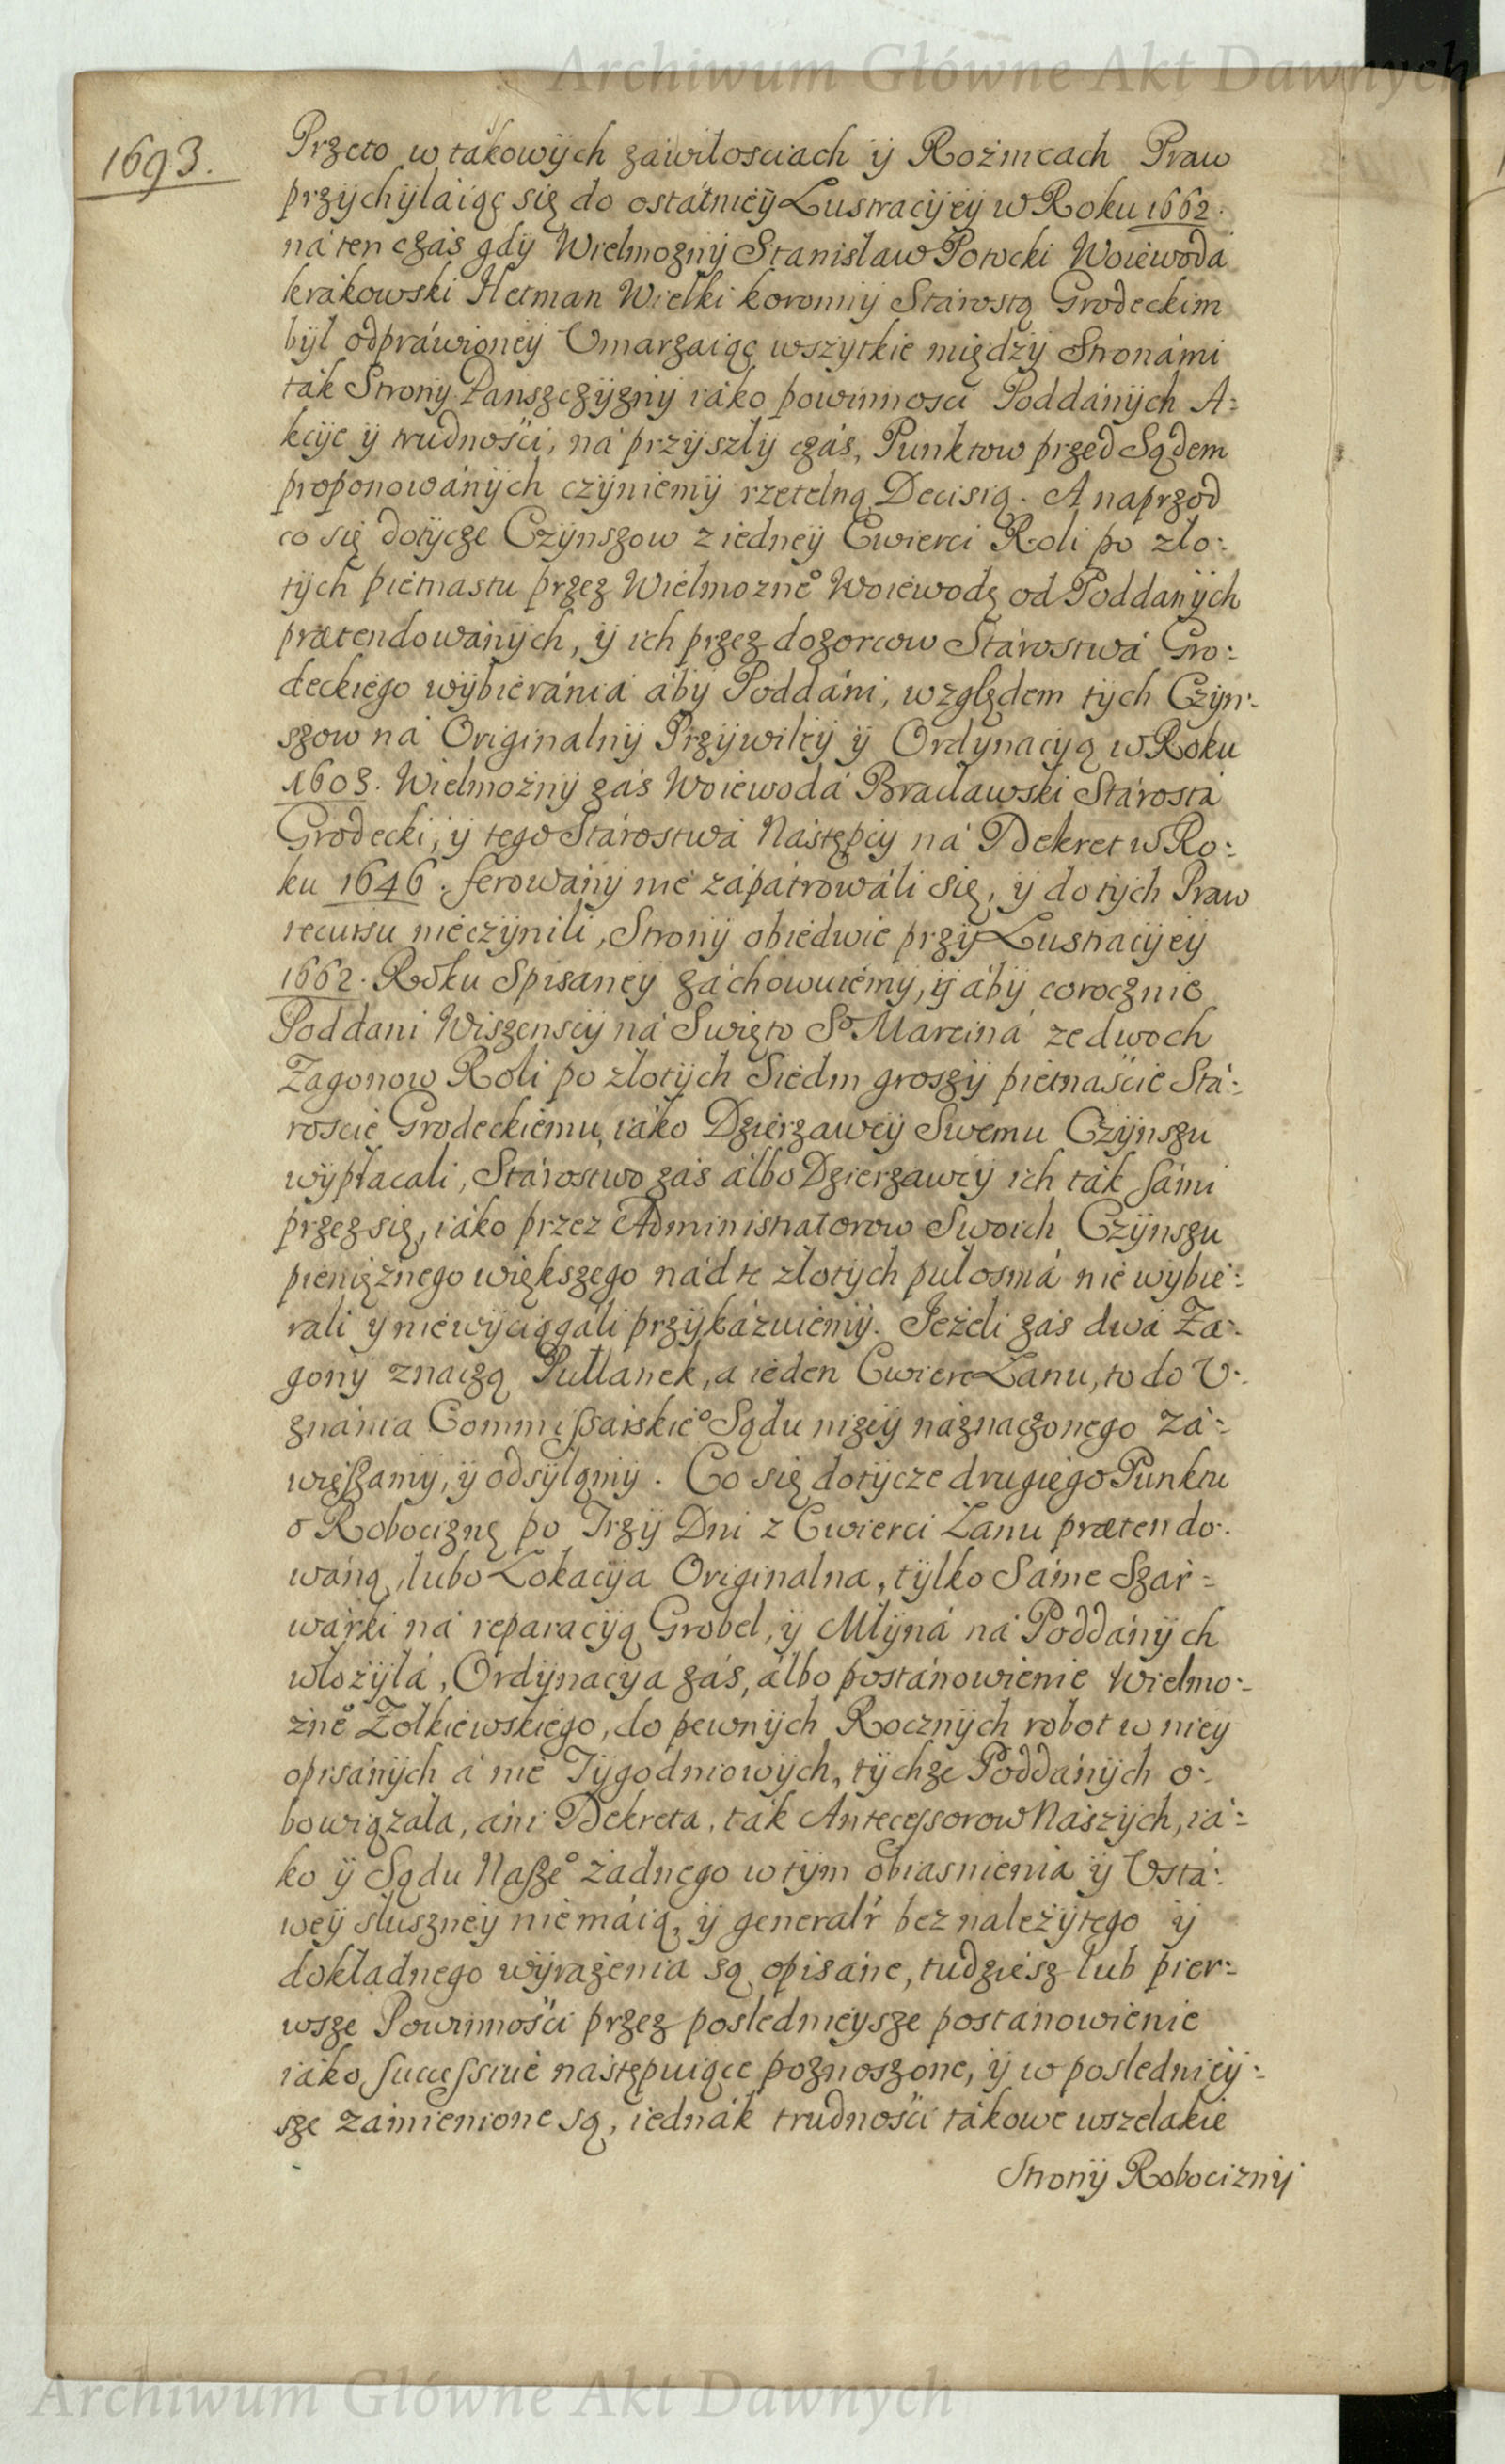 Archiwum Główne Akt Dawnych
1693.
Przeto w tákowÿch zawiłosciach ÿ Rożnicach Praw
przÿchÿláiąc się do ostátnieÿ Lustracÿeÿ w Roku 1662.
ná ten czás gdÿ Wielmoznÿ Stanisław Potocki Woiewodá
krákowski Hetman Wielki koronnÿ Stárostą Grodeckim
bÿł odpráwioneÿ Vmarzaiąc wszÿtkie międzÿ Stronámi
ták Stronÿ Panszczÿznÿ iáko powinnosci Poddánÿch A=
kcÿe ÿ trudnośći, ná przÿszłÿ czás, Punktow przed Sądem
proponowánÿch czÿniemÿ rzetelną Decisią. A naprzod
co się dotÿcze Czÿnszow z iedneÿ Cwierci Roli po zło=
tÿch pietnastu przez Wielmozne° Woiewodę od Poddanÿch
prætendowánÿch, ÿ ich przez dozorcow Stárostwá Gro=
deckiego wÿbieránia ábÿ Poddáni, względem tÿch Czÿn=
szow ná Originalnÿ Przÿwileÿ ÿ Ordÿnacÿą w Roku
1603. Wielmożnÿ zás Woiewodá Bracławski Stárostá
Grodecki, ÿ tego Stárostwá Następcÿ ná Dekret w Ro=
ku 1646. ferowánÿ nie zápátrowáli się, ÿ do tÿch Praw
recursu nieczÿnili, Stronÿ obiedwie przÿ Lustracÿeÿ
1662. Roku Spisaneÿ záchowuiemÿ, ÿ ábÿ corocznie
Poddani Wiszenscÿ ná Swięto S° Marciná ze dwoch
Zagonow Roli po złotÿch Siedm groszÿ pietnaśćie Stá=
roscie Grodeckiemu iáko Dzierzawcÿ Swemu Czÿnszu
wÿpłacali, Stárostwo zás álbo Dzierzawcÿ ich ták sámi
przez się, iáko przez Administratorow Swoich Czÿnszu
pieniężnego większego nád te złotÿch pułosmá nie wÿbie=
rali ÿ niewÿciągáli przÿkázuiemÿ. Jeżeli zás dwá Za=
gonÿ znaczą Pułłanek, a ieden Cwierć Łanu, to do V=
znánia Commissarskie° Sądu nizeÿ náznaczonego zá=
więszamÿ, ÿ odsÿłąmÿ. Co się dotÿcze drugiego Punktu
o Robociznę po Trzÿ Dni z Cwierci Łanu prætendo=
wáną, lubo Lokacÿa Originalna, tÿlko Sáme Szar=
wárki ná reparacÿą Grobel, ÿ Młÿná ná Poddánÿch
włożÿłá, Ordÿnacÿa zás, álbo postánowienie Wielmo=
żne° Zołkiewskiego, do pewnÿch Rocznÿch robot w nieÿ
opisánÿch á nie Tÿgodniowÿch, tÿchze Poddánÿch o=
bowiązała, áni Dekreta, ták Antecessorow Nászÿch, iá=
ko ÿ Sądu Nasze° żadnego w tÿm obiasnienia ÿ Vstá=
weÿ słuszneÿ niemáią, ÿ generalr bez należÿtego ÿ
dokładnego wÿrażenia są opisáne, tudziesz lub pier=
wsze Powinnośći przez poslednieÿsze postánowienie
iáko successiue nástępuiące poznoszone, ÿ w poslednieÿ=
sze zámienione są, iednák trudnośći tákowe wszelakie
Stronÿ Robociznÿ
Archiwum Główne Akt Dawnych